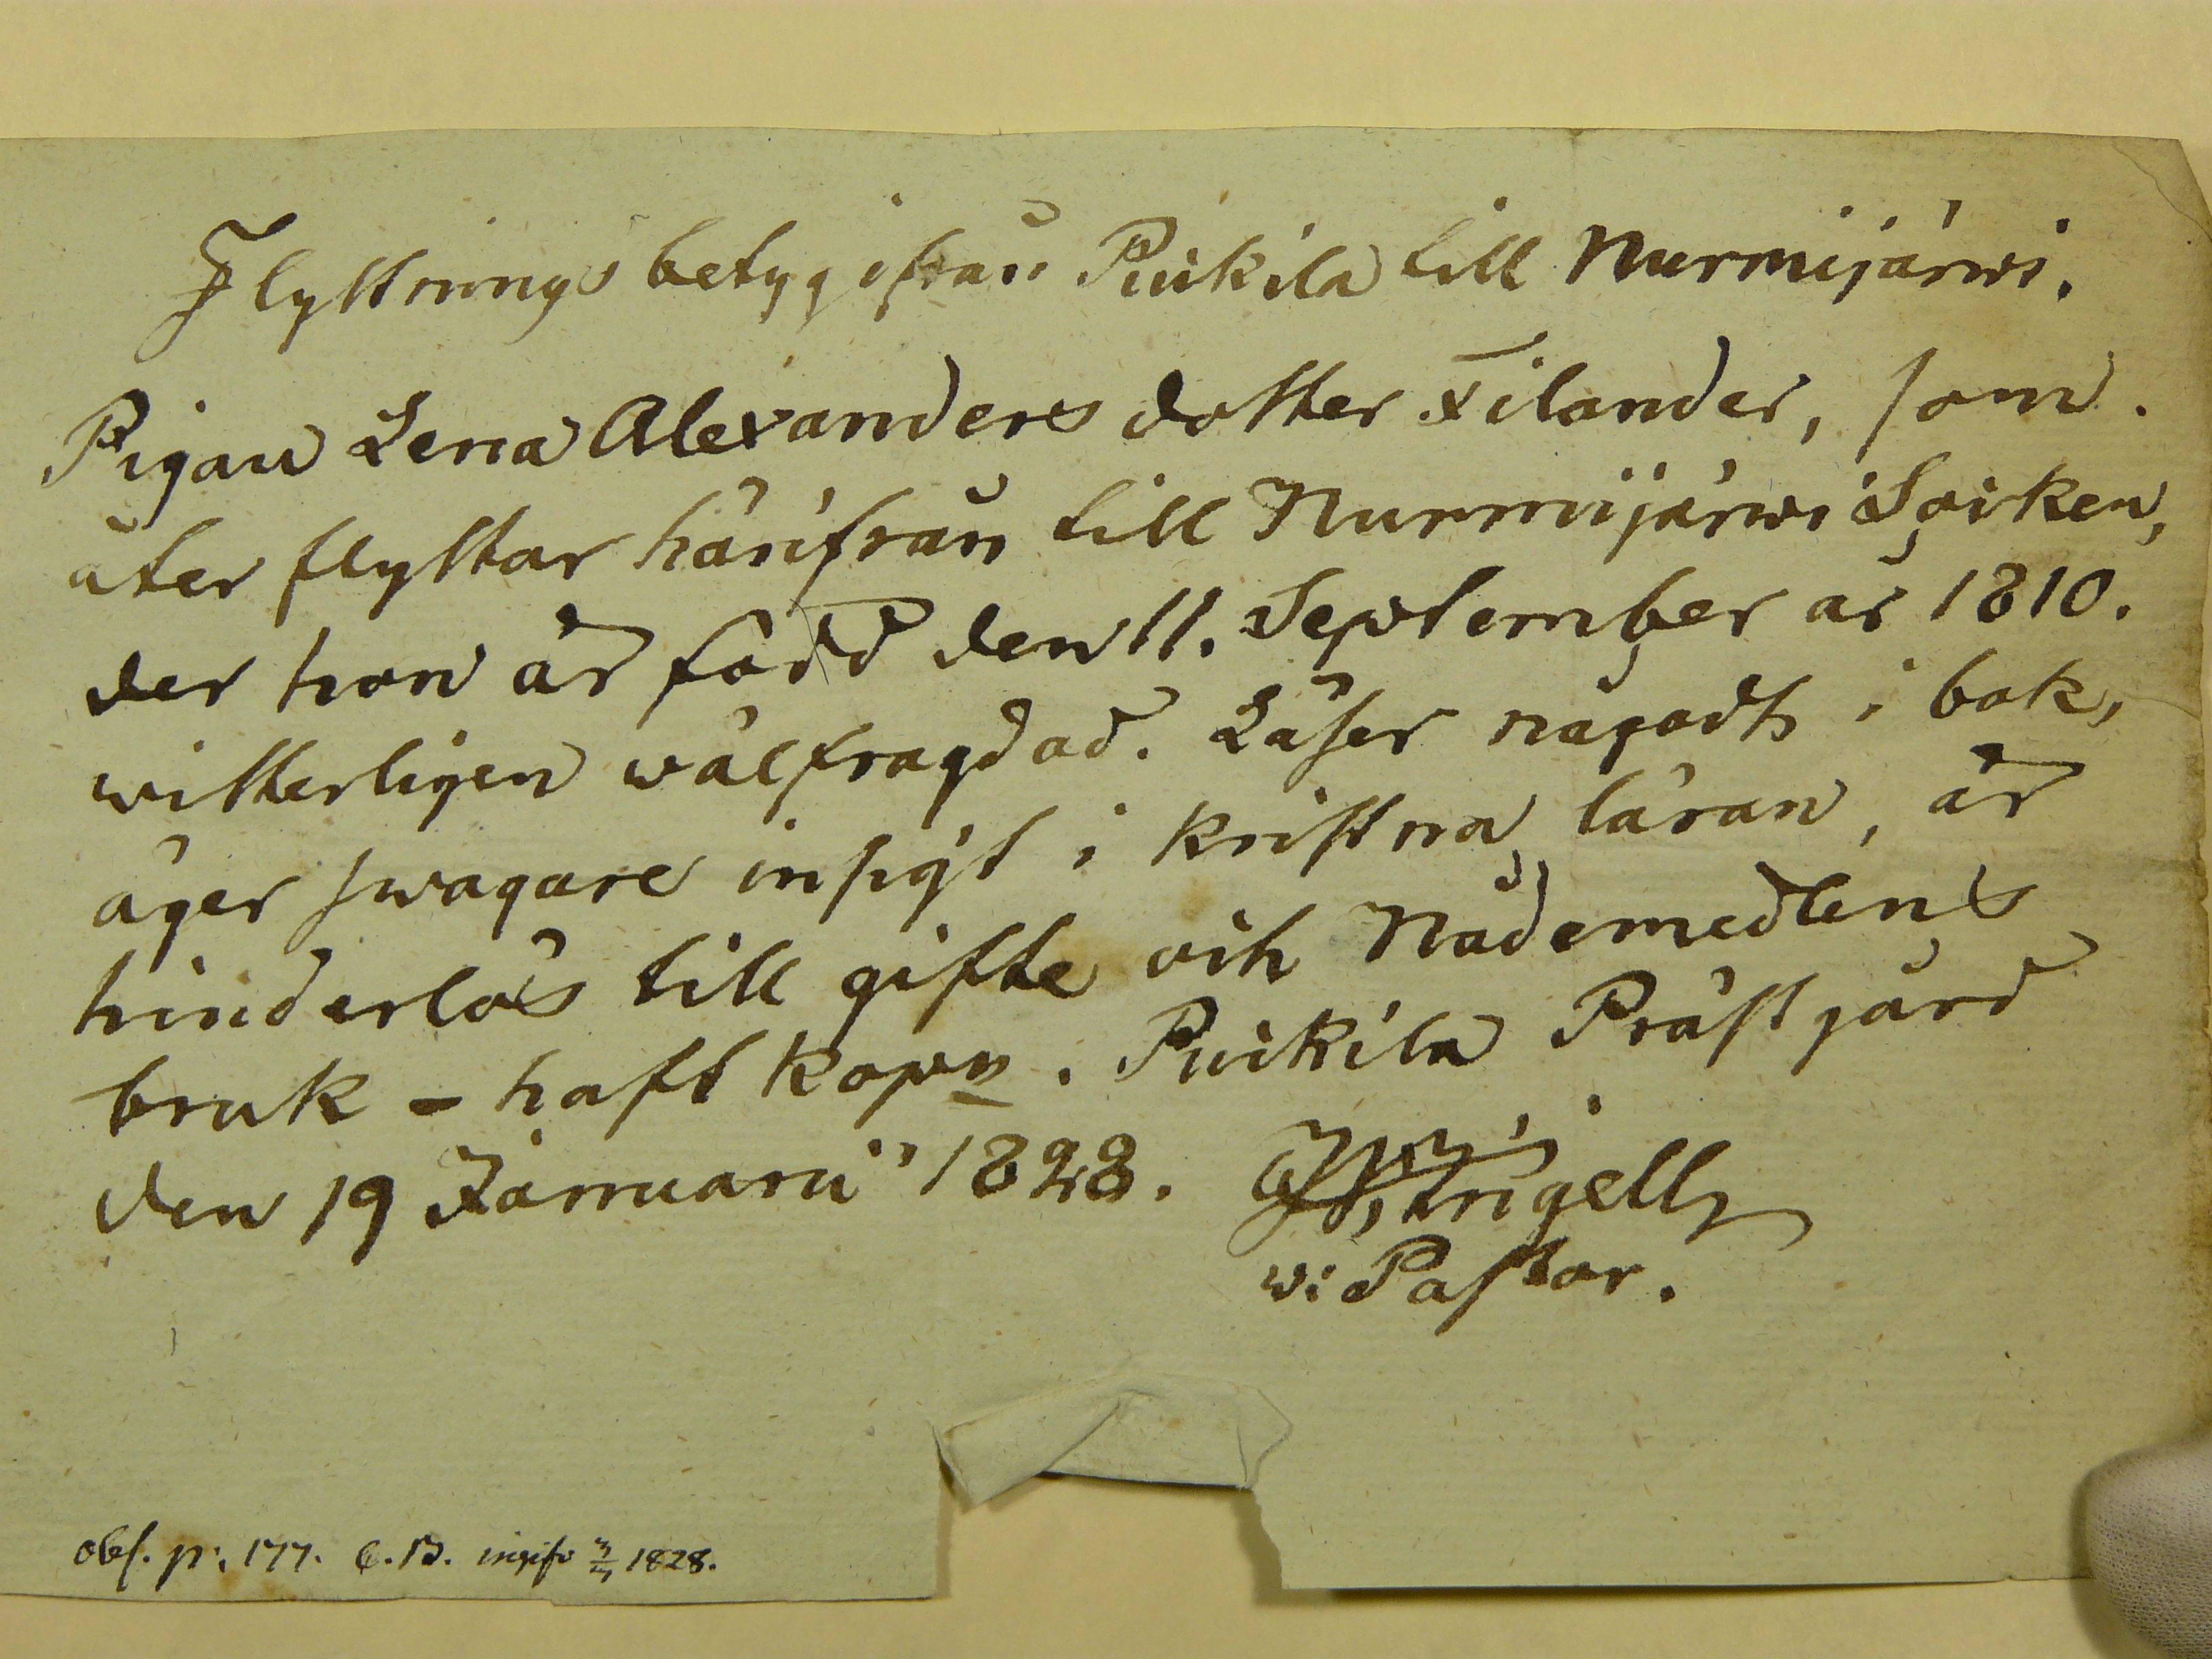 Flyttnings betyg ifrån Puikila till Nurmijärwi.
Pigan Lena Alexanders dotter Filander, som
åter flyttar härifrån till Nurmijärwi Socken,
der hon är född den 11. September år 1810.
witterligen wälfragdad. Läser någodt i bok,
äger swagare insigt i kristna läran, är
hinderlös till gifte och Nådemedlens
bruk – haft kopp. Puikila Prästgård
den 19 Januarii 1828.
w: Pastor.
obs. p: 177. C.B. 1828.